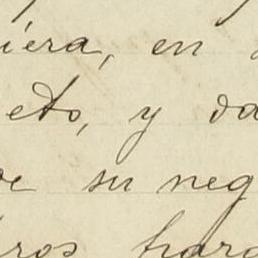 iera, en
eto, y da
de su neg
ros para